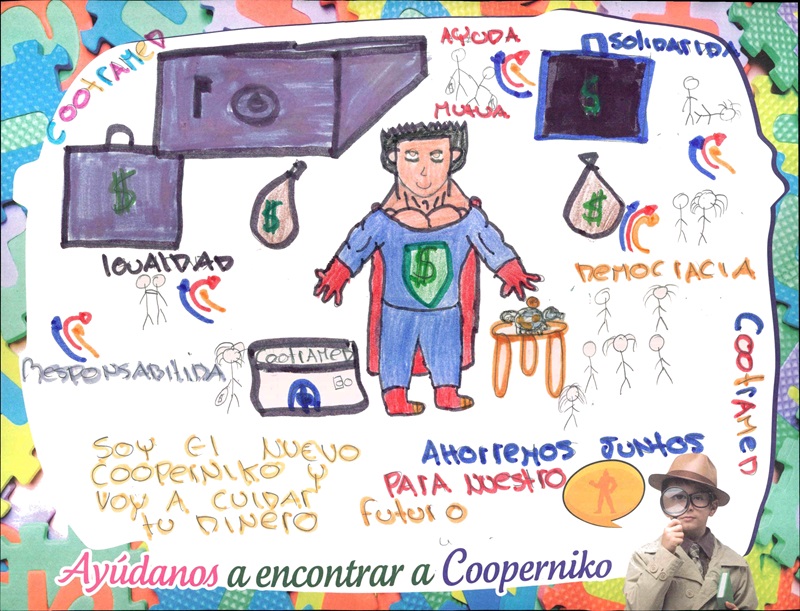 CootrAMeD
AYUDA
MUTUA
SOLIDARIDA
$
$
$
$
IGUALDAD
$
DEMOCRACIA
RESPONSABILIDA
CootrAMeD
CootrAMeD
SOY El NUEVO
COOPERNIKO Y
VOY A CUIDAR
tu DINERO
AHORREMOS JUNTOS
PARA NUESTRO
futuro
Ayúdanos a encontrar a Cooperniko